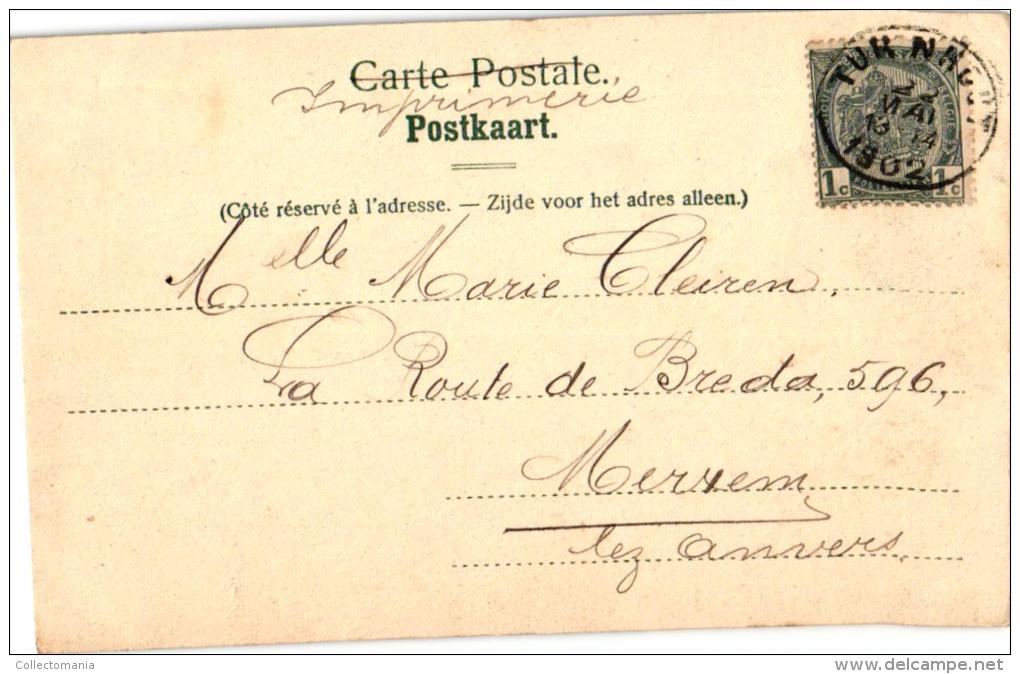 Carte Postale.
Imprimerie
Postkaart.
TURNHOUT
22
MAI
13-14
1902
1c 1c
(Côté réservé à l'adresse. — Zijde voor het adres alleen.)
Melle Marie Cleiren,
La Route de Breda, 596,
Merxem
lez Anvers,
Collectomania
delcampe.net